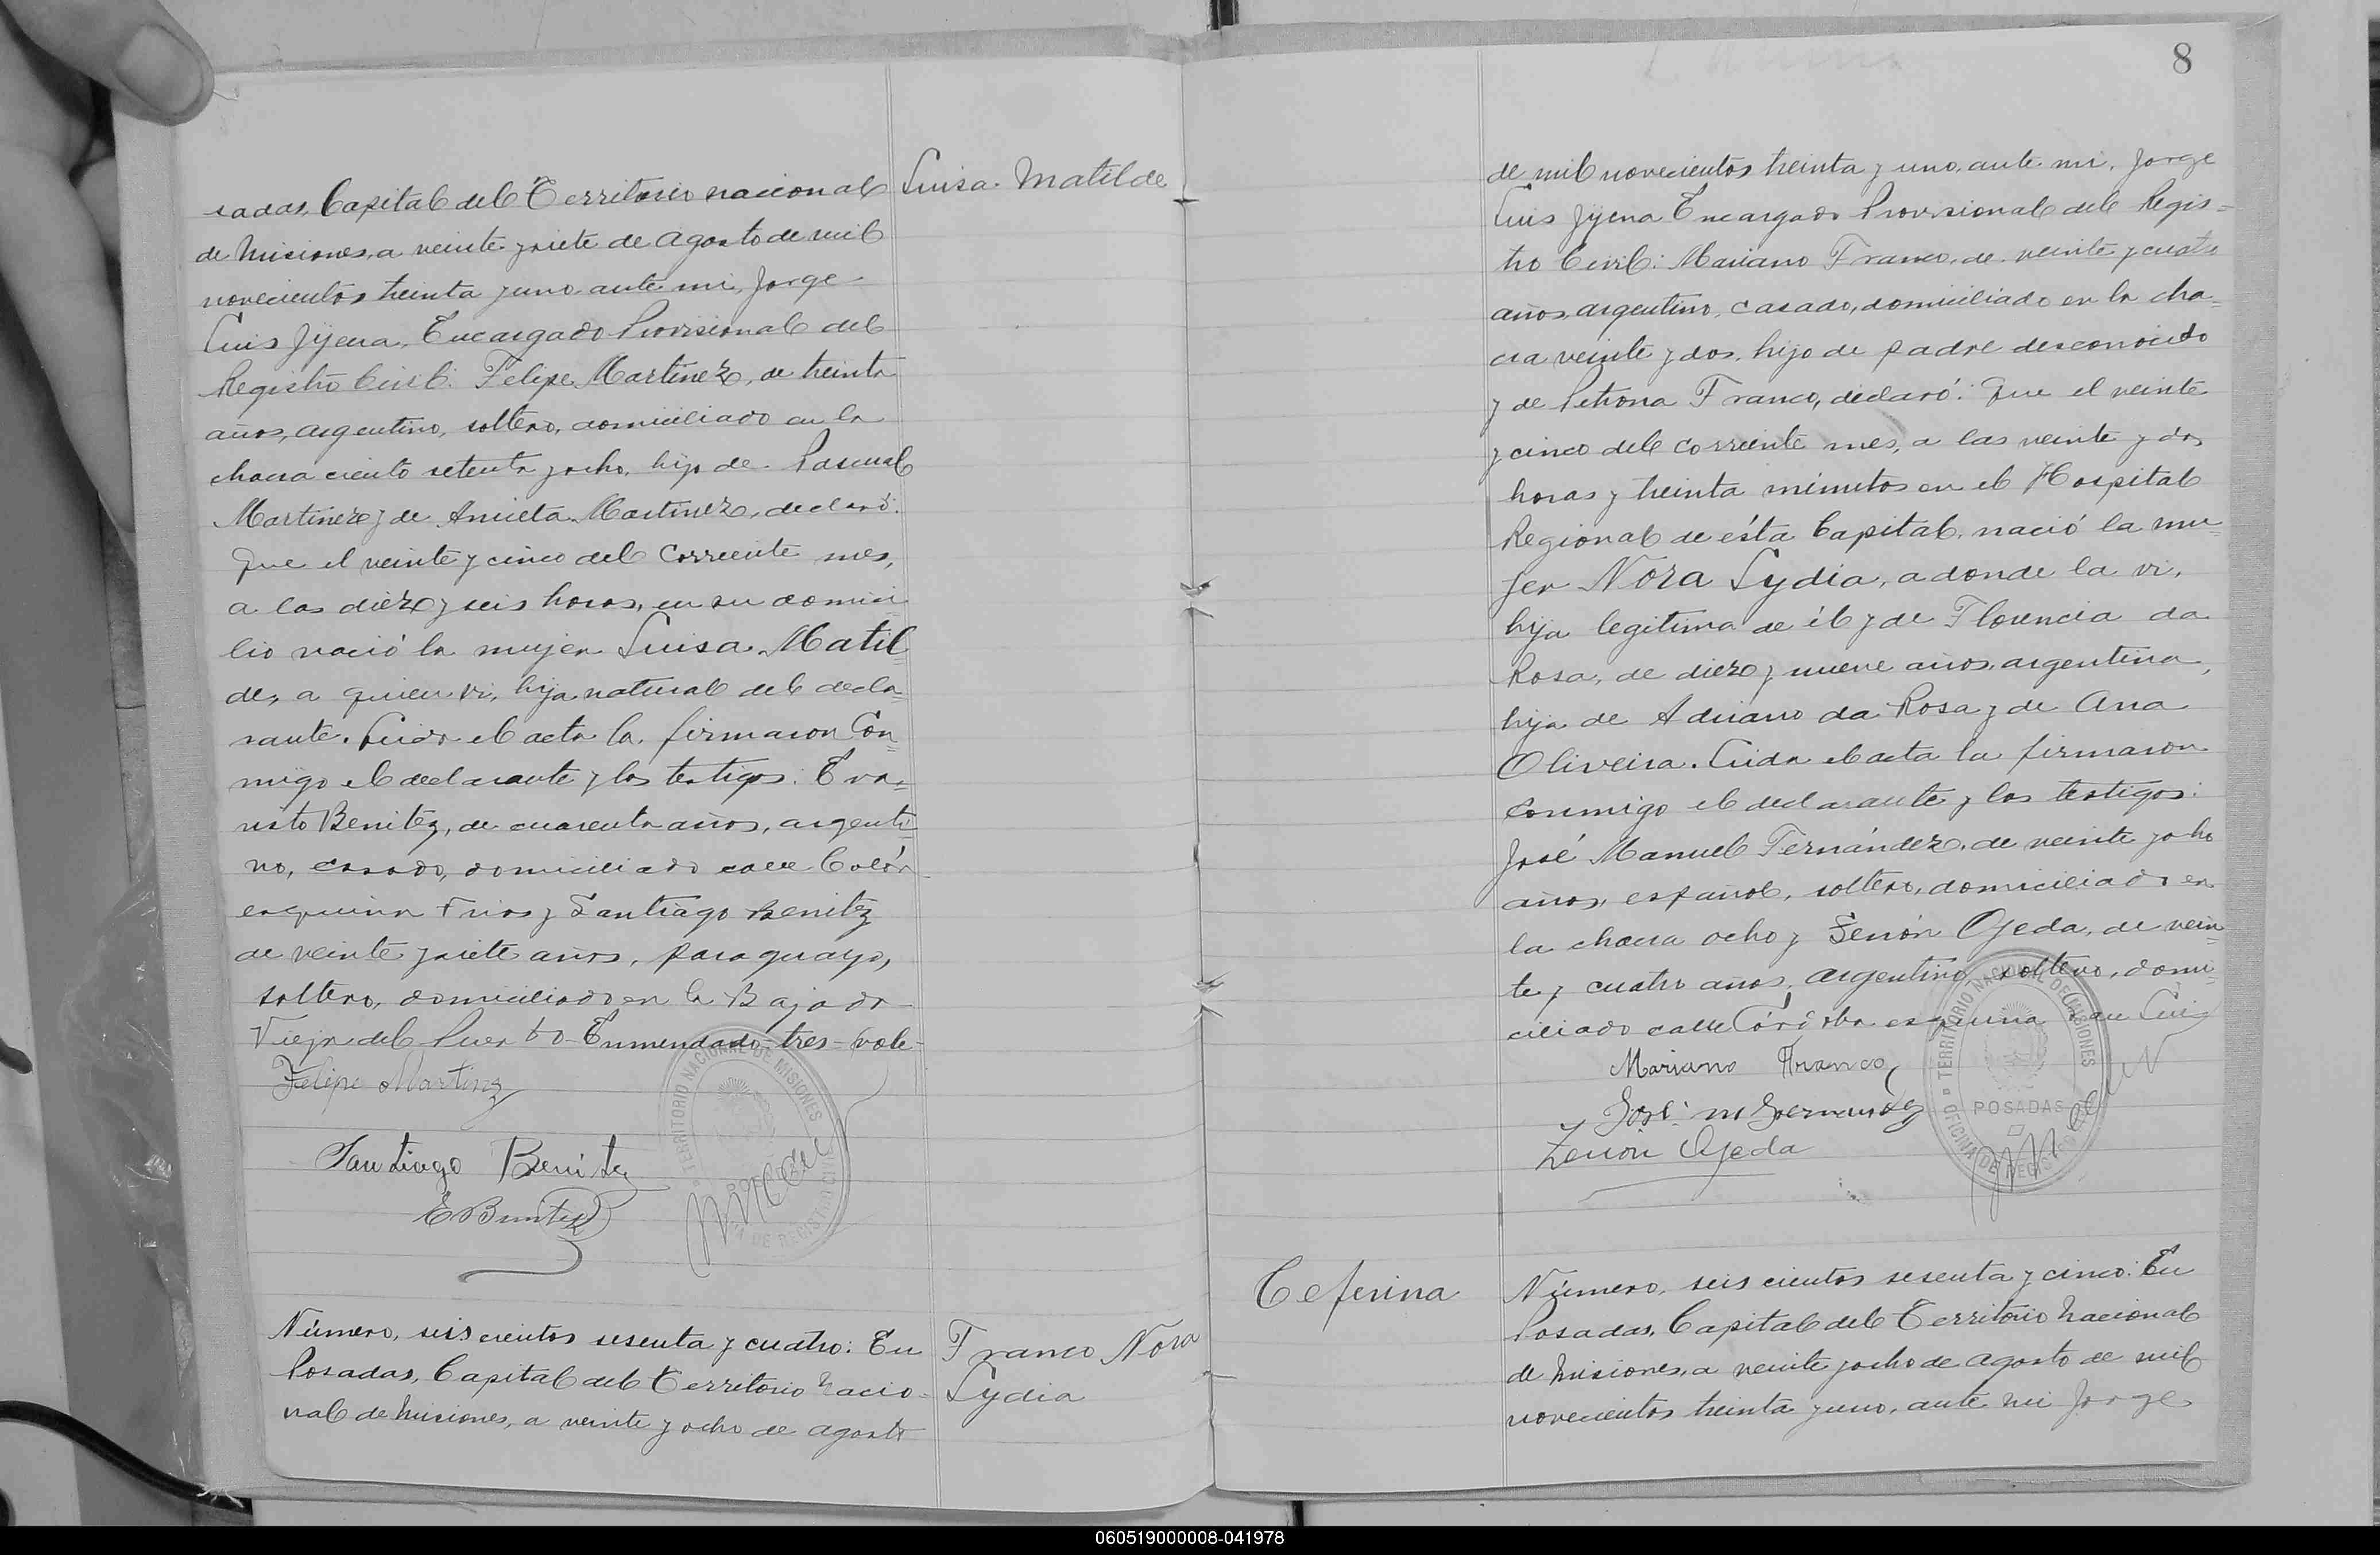 sadas, Capital del Territorio nacional
Luisa Matilde
de Misiones, a veinte y siete de Agosto de mil
novecientos treinta y uno ante mi, Jorge
Luis Jijena, Encargado Provisional del
Registro Civil: Felipe Martinez, de treinta
años, argentino, soltero, domiciliado en la
chacra ciento setenta y ocho, hijo de Pascual
Martinez y de Anieta Martinez, declaró:
Que el veinte y cinco del corriente mes,
a las diez y seis horas, en su domici
lio nació la mujer Luisa Matil=
de, a quien vi, hija natural del decla=
rante. Leida el acta la firmaron Con=
migo el declarante y los testigos: Eva=
risto Benitez, de cuarenta años, argenti=
no, casado, domiciliado calle Colón
esquina Frias y Santiago Benitez
de veinte y siete años, paraguayo,
soltero, domiciliado en la Bajada
Vieja del Puerto - Enmendado - tres - vale -
Felipe Martinez
Santiago Benitez
E Benitez
TERRITORIO NACIONAL DE MISIONES
Número, seis cientos sesenta y cuatro: En
Posadas, Capital del Territorio Nacio-
nal de Misiones, a veinte y ocho de agosto
Franco Nora
Lydia
8
de mil novecientos treinta y uno, ante mi, Jorge
Luis Jijena Encargado Provisional del Regis=
tro Civil: Mariano Franco, de veinte y cuatro
años, argentino, casado, domiciliado en la cha=
cra veinte y dos, hijo de padre desconocido
y de Petrona Franco, declaró: Que el veinte
y cinco del corriente mes, a las veinte y dos
horas y treinta minutos en el Hospital
Regional de ésta Capital, nació la mu=
jer Nora Lydia, a donde la vi,
hija legitima de él y de Florencia da
Rosa, de diez y nueve años, argentina,
hija de Adriano da Rosa y de Ana
Oliveira. Leida el acta la firmaron
conmigo el declarante y los testigos:
José Manuel Fernández, de veinte y ocho
años, español, soltero, domiciliado en
la chacra ocho y Zenón Ojeda, de vein=
te y cuatro años, argentino, soltero, domi=
ciliado calle Córdoba esquina San Luis
Mariano Franco
José M Fernandez
Zenón Ojeda
TERRITORIO NACIONAL DE MISIONES
POSADAS
OFICINA DE REGISTRO CIVIL
Ceferina
Número, seis cientos sesenta y cinco: En
Posadas, Capital del Territorio Nacional
de Misiones, a veinte y ocho de agosto de mil
novecientos treinta y uno, ante mi Jorge
060519000008-041978